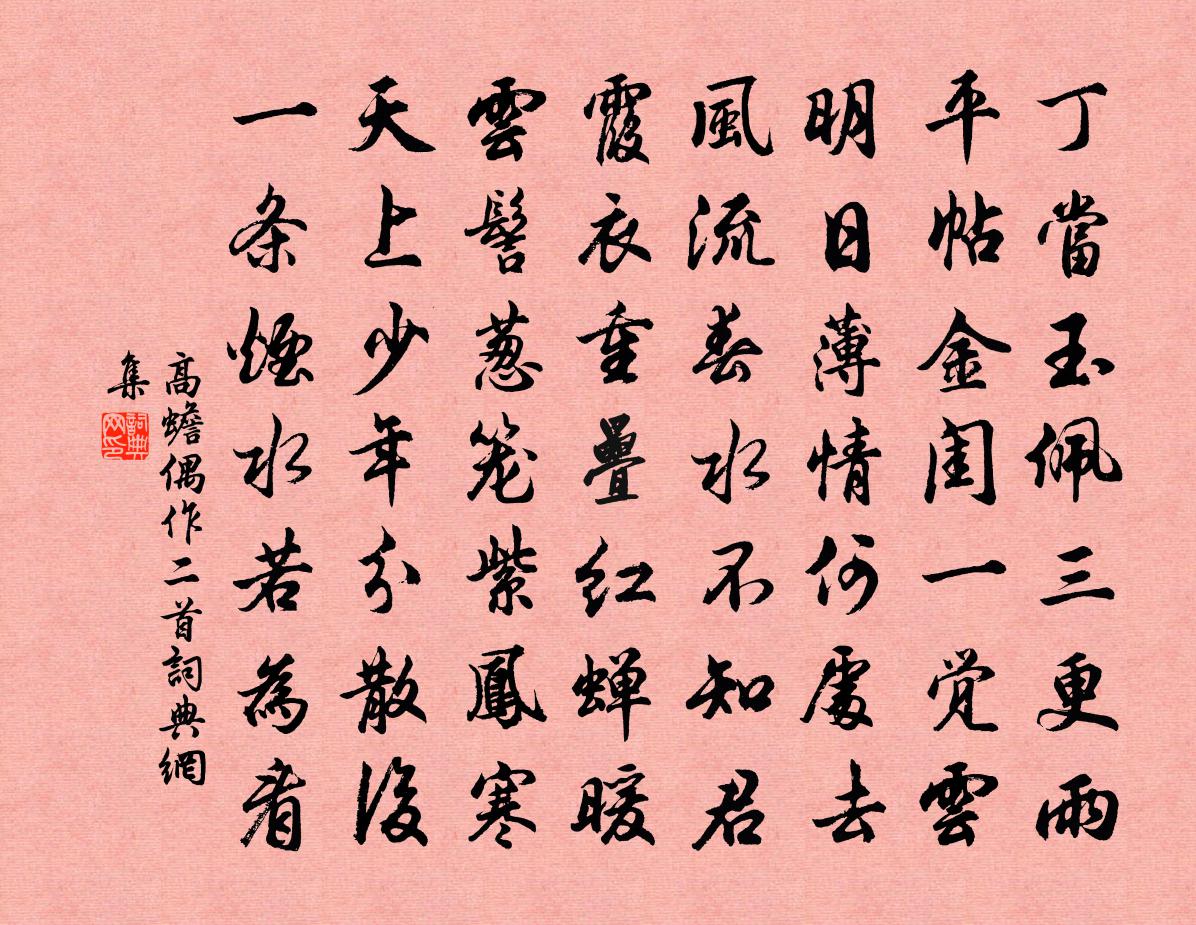 丁當玉佩三更雨
平帖金闺一觉雲
明日薄情何處去
風流春水不知君
霞衣重疊红蝉暖
雲髻葱笼紫鳳寒
天上少年分散後
一条煙水若為看
高蟾偶作二首詞典網
集
詞典
网印